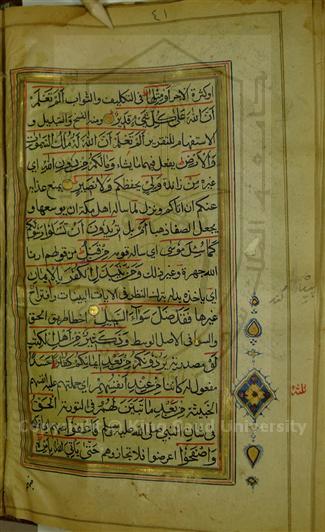 ٤١
او كثرة الاجر او مثلها فى التكليف والثواب الم تعلم
ان الله على كل شىء قدير ومنه النسخ والتبديل و
الاستفهام للتقرير الم تعلم ان الله له ملك السموات
والارض يفعل فيهما ما يشاء وما لكم من دون الله اى
غيره من زائدة ولى يحفظكم ولا نصير يمنع عذابه
عنكم ان اتاكم ونزل لما ساله اهل مكة ان يوسعها و
يجعل الصفا ذهبا ام بل تريدون ان تسئلوا رسولكم
كما سئل موسى اى ساله قومه من قبل من قولهم ارنا
الله جهرة وغير ذلك ومن يتبدل الكفر بالايمان
اى ياخذه بدله بترك النظر فى الايات البينات واقتراح
غيرها فقد ضل سواء السبيل اخطا طريق الحق
والسوا فى الاصل الوسط ود كثير من اهل الكتب
لو مصدرية يردونكم من بعد ايمانكم كفارا حسدا
مفعول له كائنا من عند انفسهم اى حملتهم عليه انفسهم
الخبيثة من بعد ما تبين لهم فى التورية الحق
فى شان النبى صلى الله عليه وسلم فاعفوا عنهم
واصفحوا اعرضوا فلا تجازوهم حتى ياتى الله بامره
King Saud University